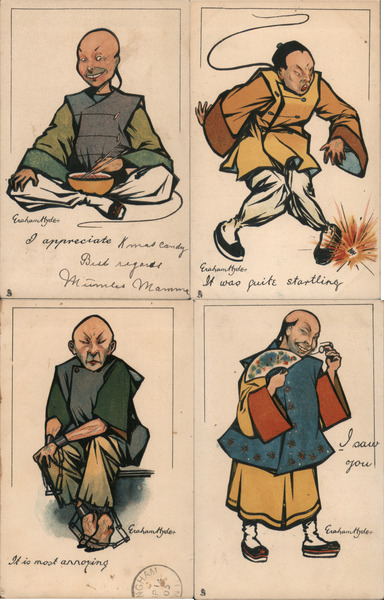 Graham Hyde
I appreciate Xmas candy
Best regards
Mumles Mamma
Graham Hyde
It was quite startling
Graham Hyde
It is most annoying
NGHAM
I saw
you!
Graham Hyde